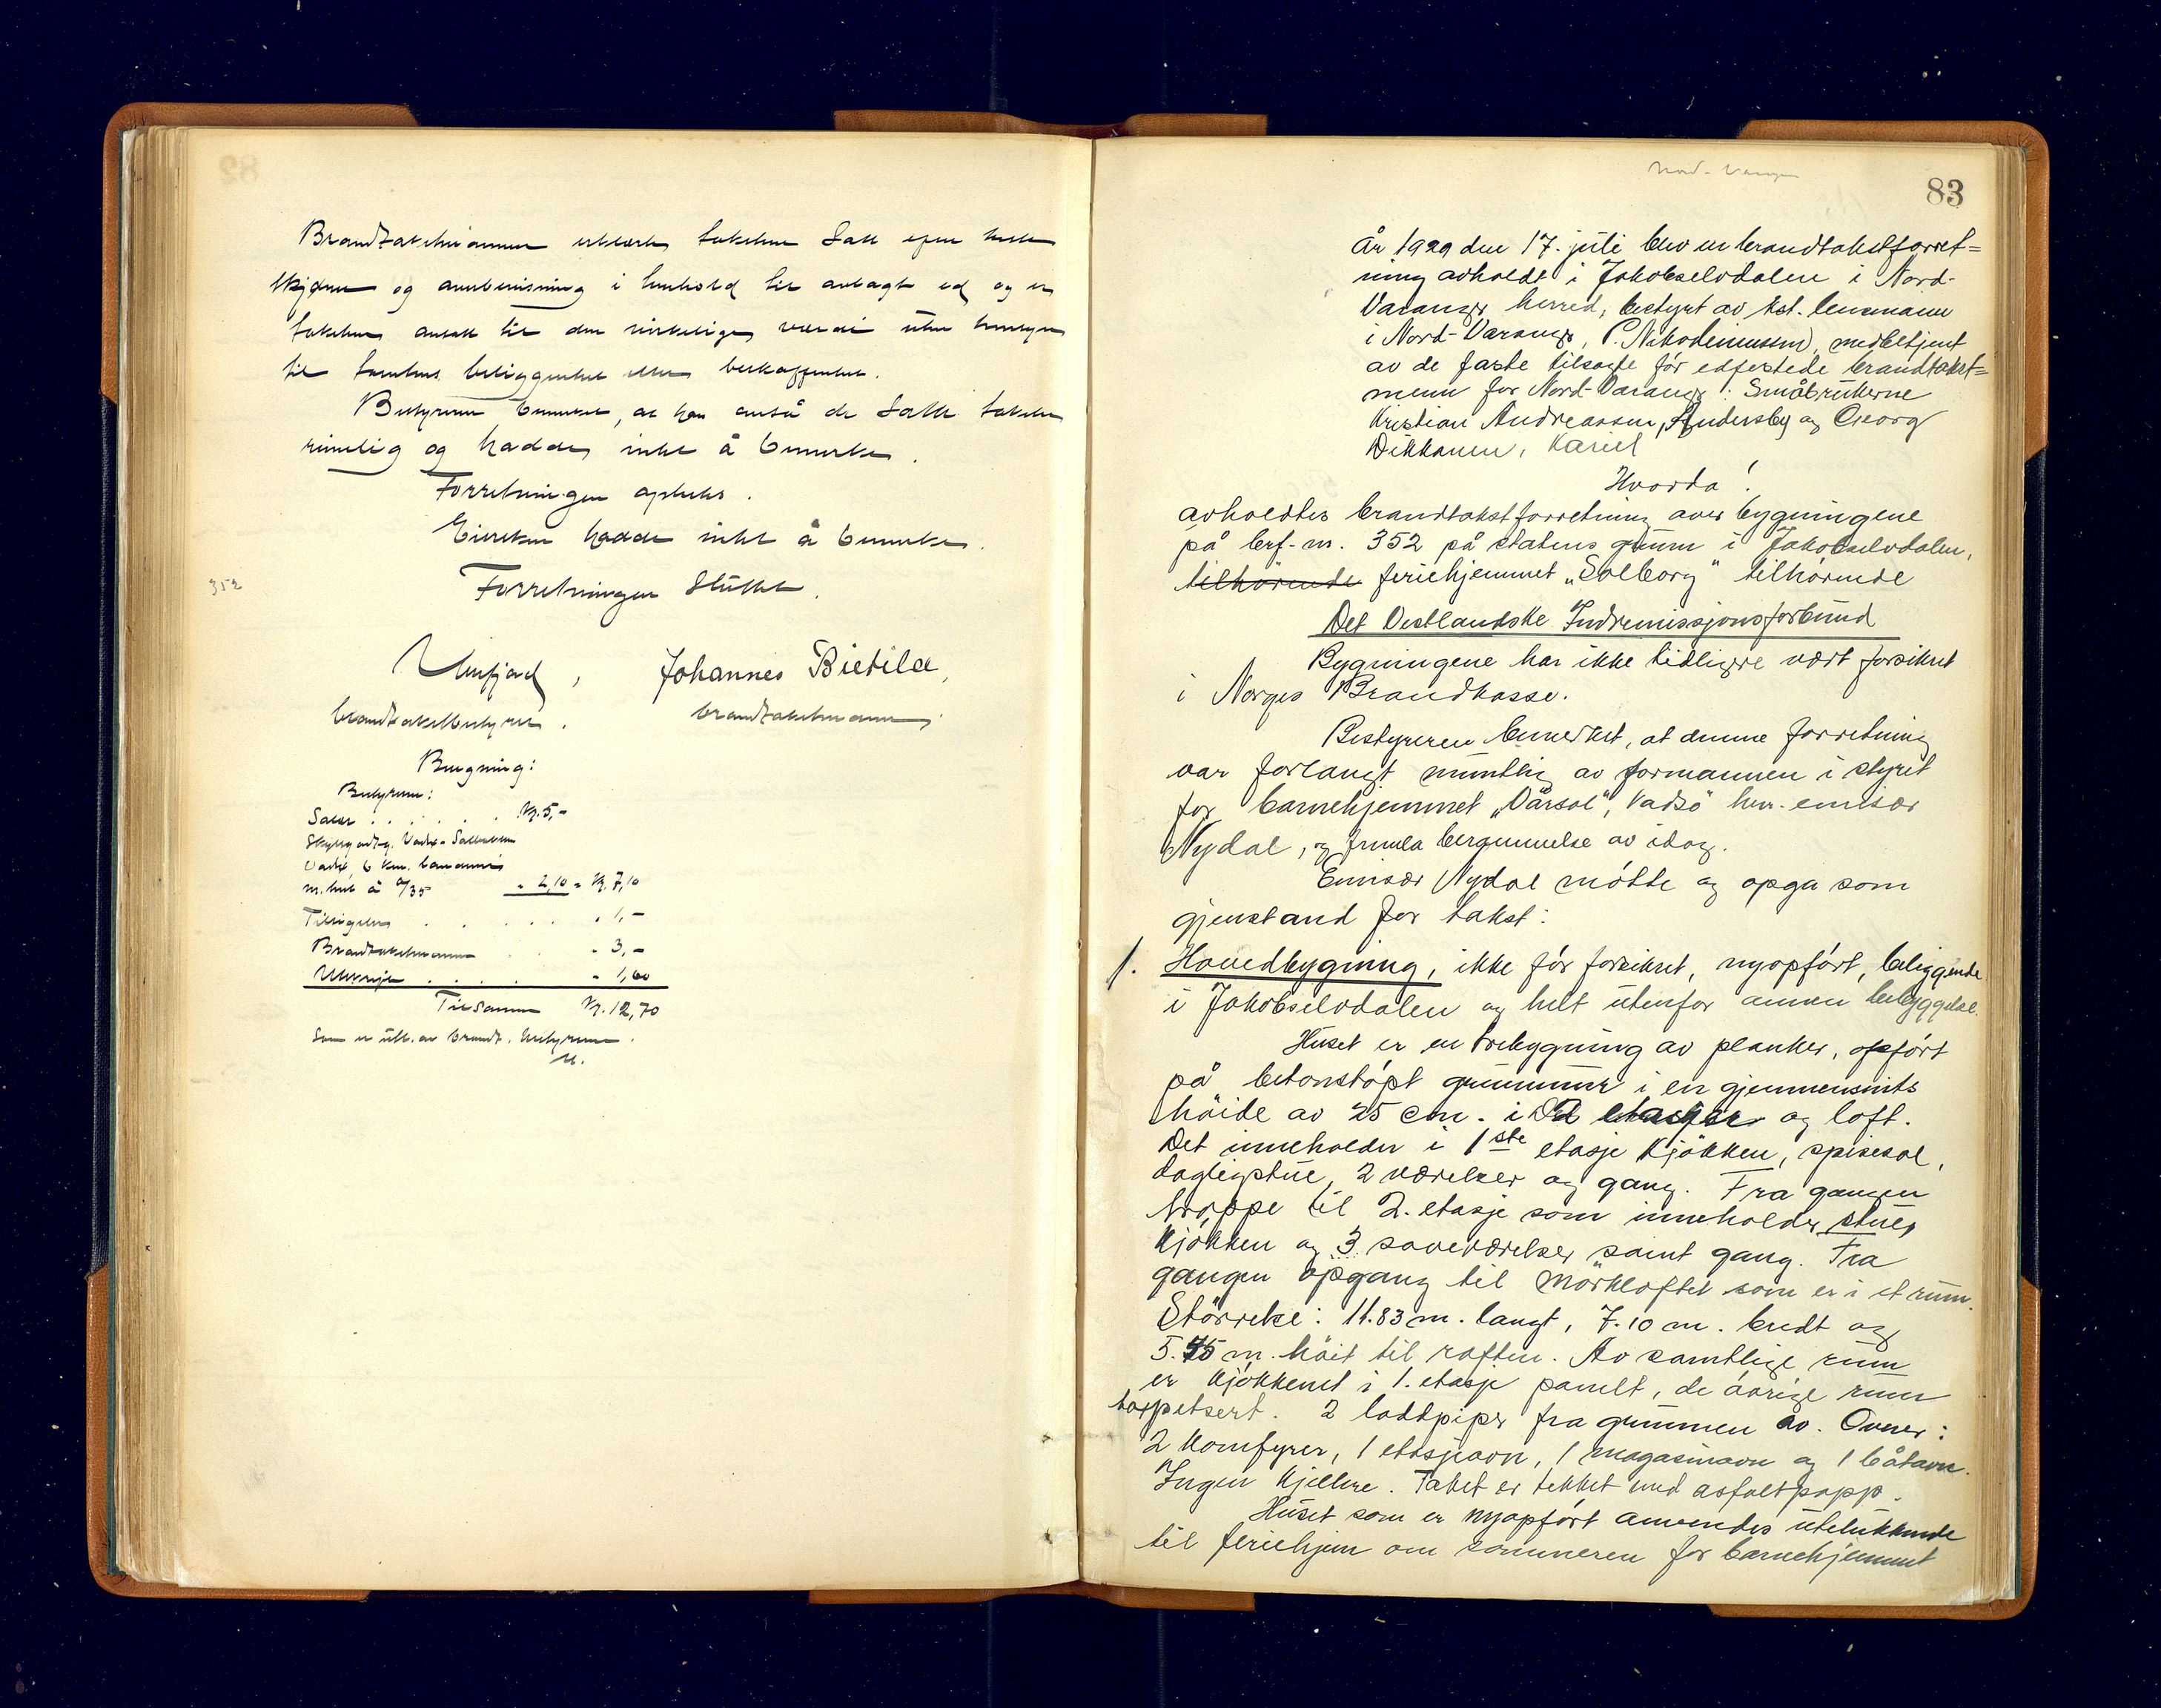 Brandtakstmannen erklærte taksten satt efter beste
skjønn og overbevisning i henhold til avlagt ed og er
taksten ansatt til den virkelige værdi uten hensyn
til tomtens beliggenhet eller beskaffenhet.
Bestyreren bemerket, at han anså de satte takster
rimelig og hadde intet å bemerke.
Forretningen oplestes.
Eieren hadde intet å bemerke.
352
Forretningen sluttet.
Johannes Bietilæ,
brandtakstbestyrer. brandtakstmann.
Beregning:
Bestyreren:
Salær . . . . . . Kr. 5,-
Vadsø, 6 km. landvei
m. hest à 0/35 " 2,10 = Kr. 7,10
Tilsigelse . . . . . . " 1,-
Brandtakstmannen . . " 3,-
Utskrift . . . . . " 1,60
Tilsammen Kr. 12,70
Som er utb. av brandt. bestyreren.
U.
Nord-Varanger
83
År 1929 den 17. juli blev en brandtakstforret=
ning avholdt i Jakobselvdalen i Nord-
Varanger herred, bestyrt av kst. lensmann
i Nord-Varanger, P. Nikodemussen, medbetjent
av de faste tilsagte før edfestede brandtakst=
menn for Nord-Varanger: Småbrukerne
Kristian Andreassen, Andersby og Georg
Dikkanen, Kariel
Hvorda!
avholdtes brandtakstforretning over bygningene
på brf-nr. 352 på statens grunn i Jakobselvdalen,
tilhørende feriehjemmet "Solborg" tilhørende
Det Vestlandske Indremissjonsforbund
Bygningene har ikke tidligere vært forsikret
i Norges Brandkasse.
Bestyreren bemerket, at denne forretning
var forlangt muntlig av formannen i styret
for barnehjemmet "Vårsol", Vadsø herr emisær
Nydal, og frmla bergunnelse av idag.
Emisær Nydal møtte og opga som
gjenstand for takst:
1. Hovedbygning, ikke før forsikret, nyopført, beliggende
i Jakobselvdalen og helt utenfor annen bebyggelse.
Huset er en trebygning av planker, opført
på betonstøpt grunnmur i en gjennemsnits
høide av 25 cm. i 2 etasjer og loft.
Det inneholder i 1ste etasje kjøkken, spisesal,
dagligstue, 2 værelser og gang. Fra gangen
trappe til 2. etasje som inneholder stue,
kjøkken og 3 soveværelser samt gang. Fra
gangen opgang til mørkloftet som er i et rum.
Størrelse: 11.83 m. langt, 7.10 m. bredt og
5.75 m. høit til raften. Av samtlige rum
er kjøkkenet i 1. etasje panelt, de øvrige rum
tapetsert. 2 loddpiper fra grunnen av. Ovner:
2 komfyrer, 1 etasjeovn, 1 magasinovn og 1 båtovn.
Ingen kjellere. Taket er tekket med asfaltpapp.
Huset som er nyopført anvendes utelukkende
til feriehjem om sommeren for barnehjemmet